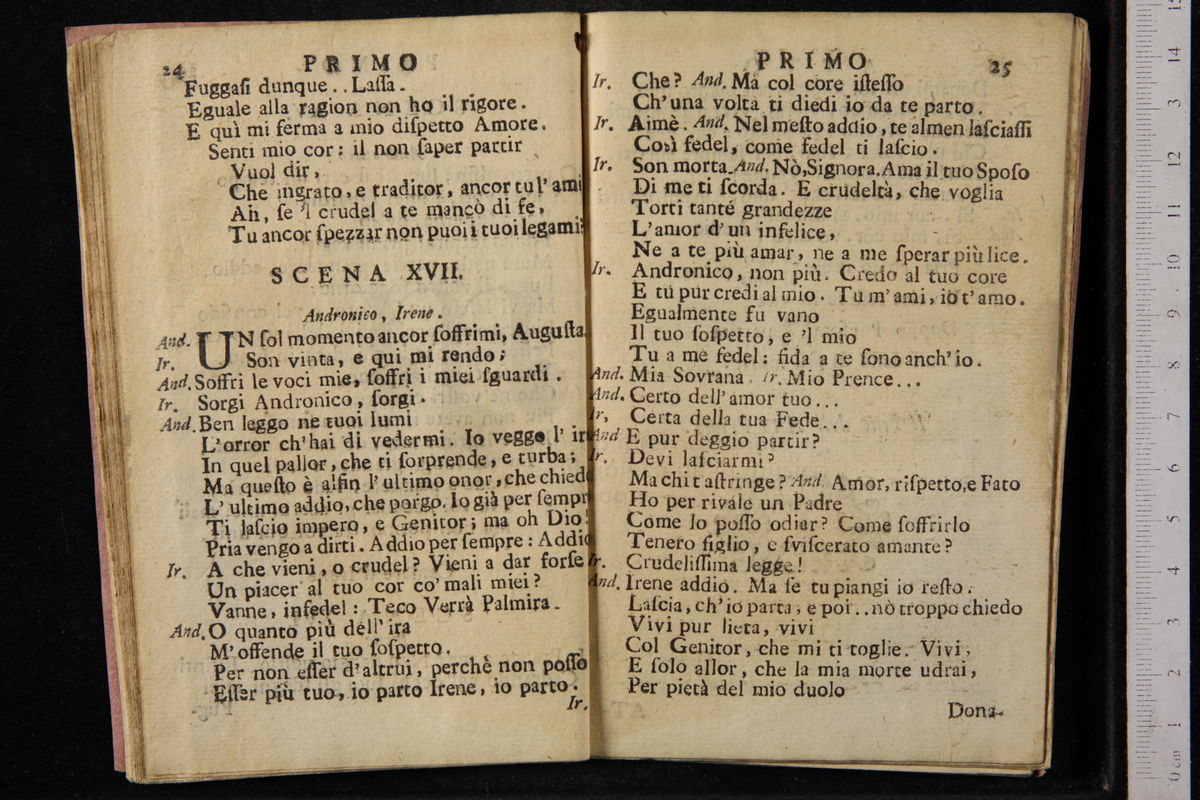 24 PRIMO
Fuggasi dunque . . Lassa .
Eguale alla ragion non ho il rigore .
E quì mi ferma a mio dispetto Amore .
Senti mio cor : il non saper partir
Vuol dir ,
Che ingrato , e traditor , ancor tu l' ami
Ah , se 'l crudel a te mancò di fe ,
Tu ancor spezzar non puoi i tuoi legami?
SCENA XVII.
Andronico , Irene .
And. UN sol momento ancor soffrimi, Augusta
Ir. Son vinta, e qui mi rendo ;
And. Soffri le voci mie, soffri i miei sguardi .
Ir. Sorgi Andronico , sorgi .
And. Ben leggo ne tuoi lumi
L'orror ch'hai di vedermi . Io veggo l' ir
In quel pallor , che ti sorprende , e turba ;
Ma questo è alfin l'ultimo onor , che chied
L' ultimo addio, che porgo. Io già per sempr
Ti lascio impero , e Genitor ; ma oh Dio!
Pria vengo a dirti . Addio per sempre : Addio
Ir. A che vieni , o crudel ? Vieni a dar forse
Un piacer al tuo cor co' mali miei ?
Vanne , infedel : Teco Verrà Palmira .
And. O quanto più dell' ira
M'offende il tuo sospetto .
Per non esser d'altrui , perchè non posso
Esser più tuo , io parto Irene , io parto .
Ir.
PRIMO 25
Ir. Che ? And. Ma col core istesso
Ch'una volta ti diedi io da te parto .
Ir. Aimè . And. Nel mesto addio , te almen lasciassi
Così fedel , come fedel ti lascio .
Ir. Son morta. And. Nò, Signora. Ama il tuo Sposo
Di me ti scorda . E crudeltà , che voglia
Torti tante grandezze
L'amor d'un infelice ,
Ne a te più amar , ne a me sperar più lice .
Ir. Andronico , non più . Credo al tuo core
E tu pur credi al mio . Tu m'ami , io t'amo .
Egualmente fu vano
Il tuo sospetto , e 'l mio
Tu a me fedel : fida a te sono anch'io .
And. Mia Sovrana . Ir. Mio Prence . . .
And. Certo dell'amor tuo . . .
Ir. Certa della tua Fede . . .
And E pur deggio partir ?
Ir. Devi lasciarmi ?
Ma chi t astringe ? And. Amor , rispetto, e Fato
Ho per rivale un Padre
Come lo posso odiar ? Come soffrirlo
Tenero figlio , e sviscerato amante ?
Ir. Crudelissima legge !
And. Irene addio . Ma se tu piangi io resto .
Lascia , ch'io parta , e poi . . nò troppo chiedo
Vivi pur lieta , vivi
Col Genitor , che mi ti toglie . Vivi ,
E solo allor , che la mia morte udrai ,
Per pietà del mio duolo
Dona-
0 cm 1 2 3 4 5 6 7 8 9 10 11 12 13 14 15